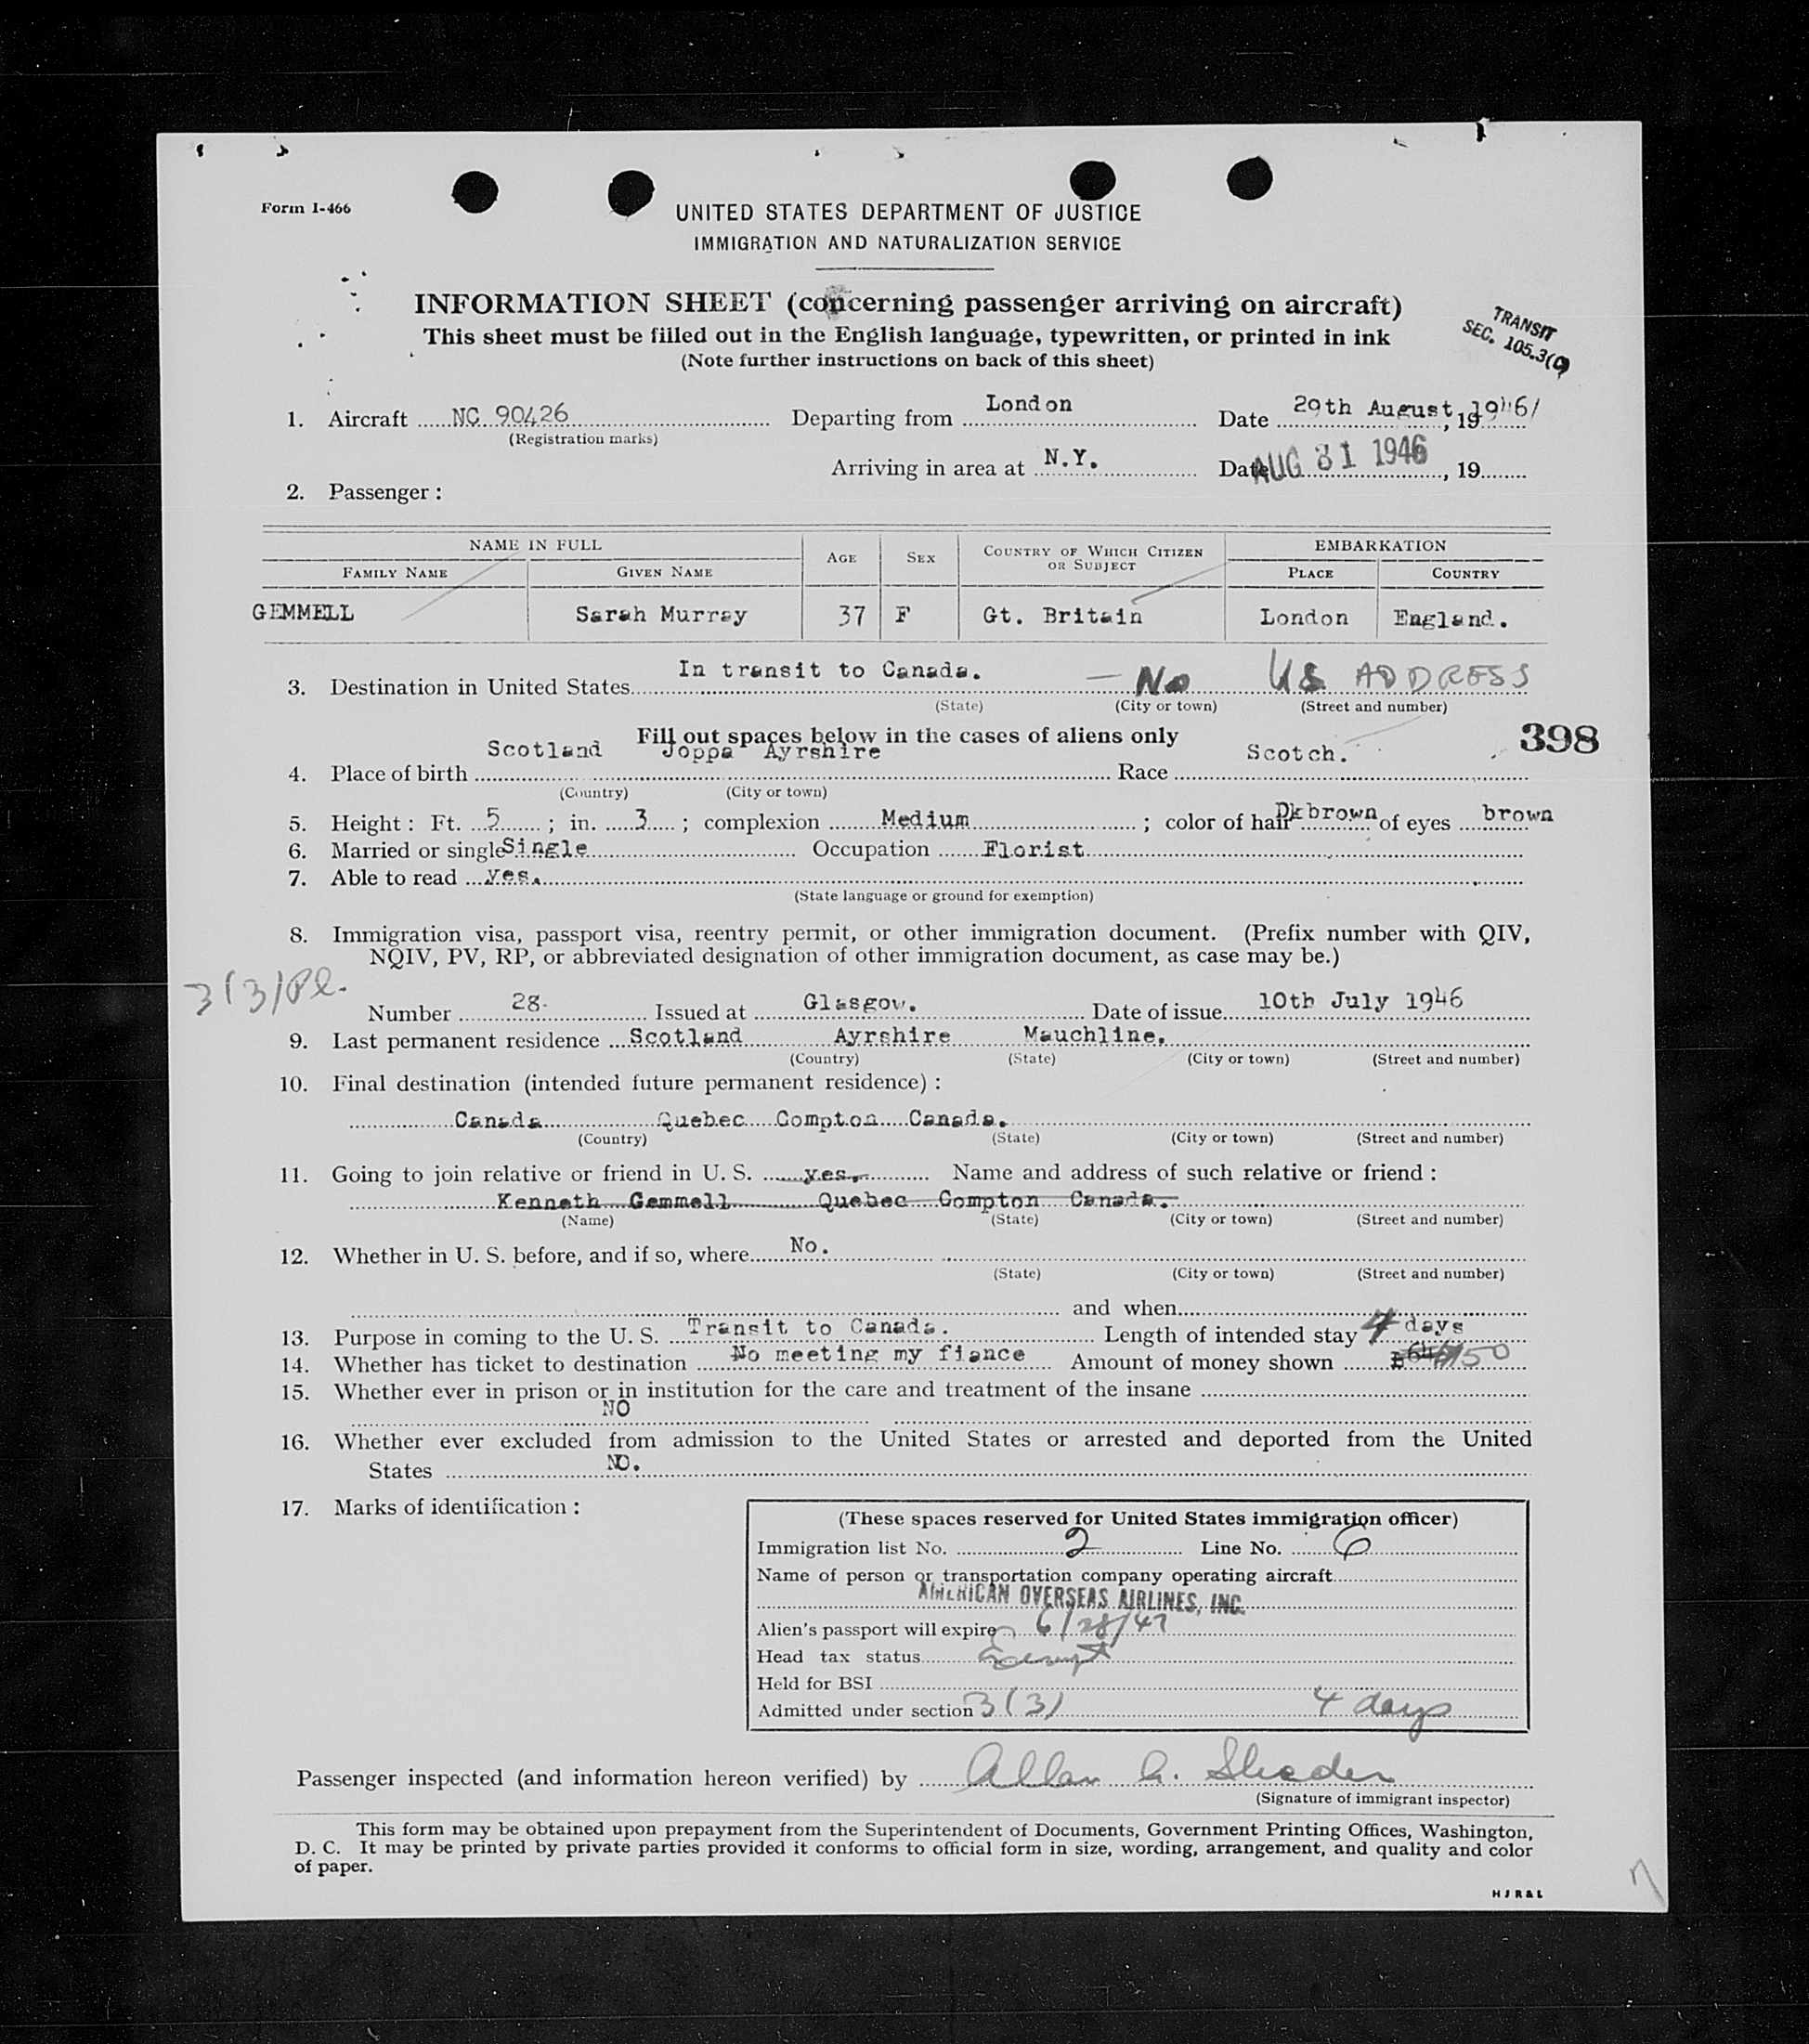 Form I-466
UNITED STATES DEPARTMENT OF JUSTICE
IMMIGRATION AND NATURALIZATION SERVICE
INFORMATION SHEET (concerning passenger arriving on aircraft)
This sheet must be filled out in the English language, typewritten, or printed in ink
(Note further instructions on back of this sheet)
TRANSIT
SEC. 105.3(C)
1. Aircraft NC 90426 Departing from London Date 29th August, 1946/
(Registration marks)
Arriving in area at N.Y. Date AUG 31 1946, 19
2. Passenger :
NAME IN FULL AGE SEX COUNTRY OF WHICH CITIZEN OR SUBJECT EMBARKATION
FAMILY NAME GIVEN NAME PLACE COUNTRY
GEMMELL Sarah Murray 37 F Gt. Britain London England.
3. Destination in United States In transit to Canada. — No US ADDRESS
(State) (City or town) (Street and number)
Fill out spaces below in the cases of aliens only
398
4. Place of birth Scotland Joppa Ayrshire Race Scotch.
(Country) (City or town)
5. Height : Ft. 5 ; in. 3 ; complexion Medium ; color of hair Dk brown of eyes brown
6. Married or single Single Occupation Florist
7. Able to read yes.
(State language or ground for exemption)
8. Immigration visa, passport visa, reentry permit, or other immigration document. (Prefix number with QIV,
NQIV, PV, RP, or abbreviated designation of other immigration document, as case may be.)
3(3)Pl.
Number 28. Issued at Glasgow. Date of issue 10th July 1946
9. Last permanent residence Scotland Ayrshire Mauchline.
(Country) (State) (City or town) (Street and number)
10. Final destination (intended future permanent residence) :
Canada Quebec Compton Canada.
(Country) (State) (City or town) (Street and number)
11. Going to join relative or friend in U. S. yes. Name and address of such relative or friend :
Kenneth Gemmell Quebec Compton Canada.
(Name) (State) (City or town) (Street and number)
12. Whether in U. S. before, and if so, where No.
(State) (City or town) (Street and number)
and when
13. Purpose in coming to the U. S. Transit to Canada. Length of intended stay 4 days
14. Whether has ticket to destination No meeting my fiance Amount of money shown 150
15. Whether ever in prison or in institution for the care and treatment of the insane
NO
16. Whether ever excluded from admission to the United States or arrested and deported from the United
States NO.
17. Marks of identification :
(These spaces reserved for United States immigration officer)
Immigration list No. 2 Line No. 6
Name of person or transportation company operating aircraft
AMERICAN OVERSEAS AIRLINES, INC.
Alien's passport will expire 6/28/47
Head tax status Exempt
Held for BSI
Admitted under section 3(3) 4 days
Passenger inspected (and information hereon verified) by Allan G. Shader
(Signature of immigrant inspector)
This form may be obtained upon prepayment from the Superintendent of Documents, Government Printing Offices, Washington,
D. C. It may be printed by private parties provided it conforms to official form in size, wording, arrangement, and quality and color
of paper.
H J R & L